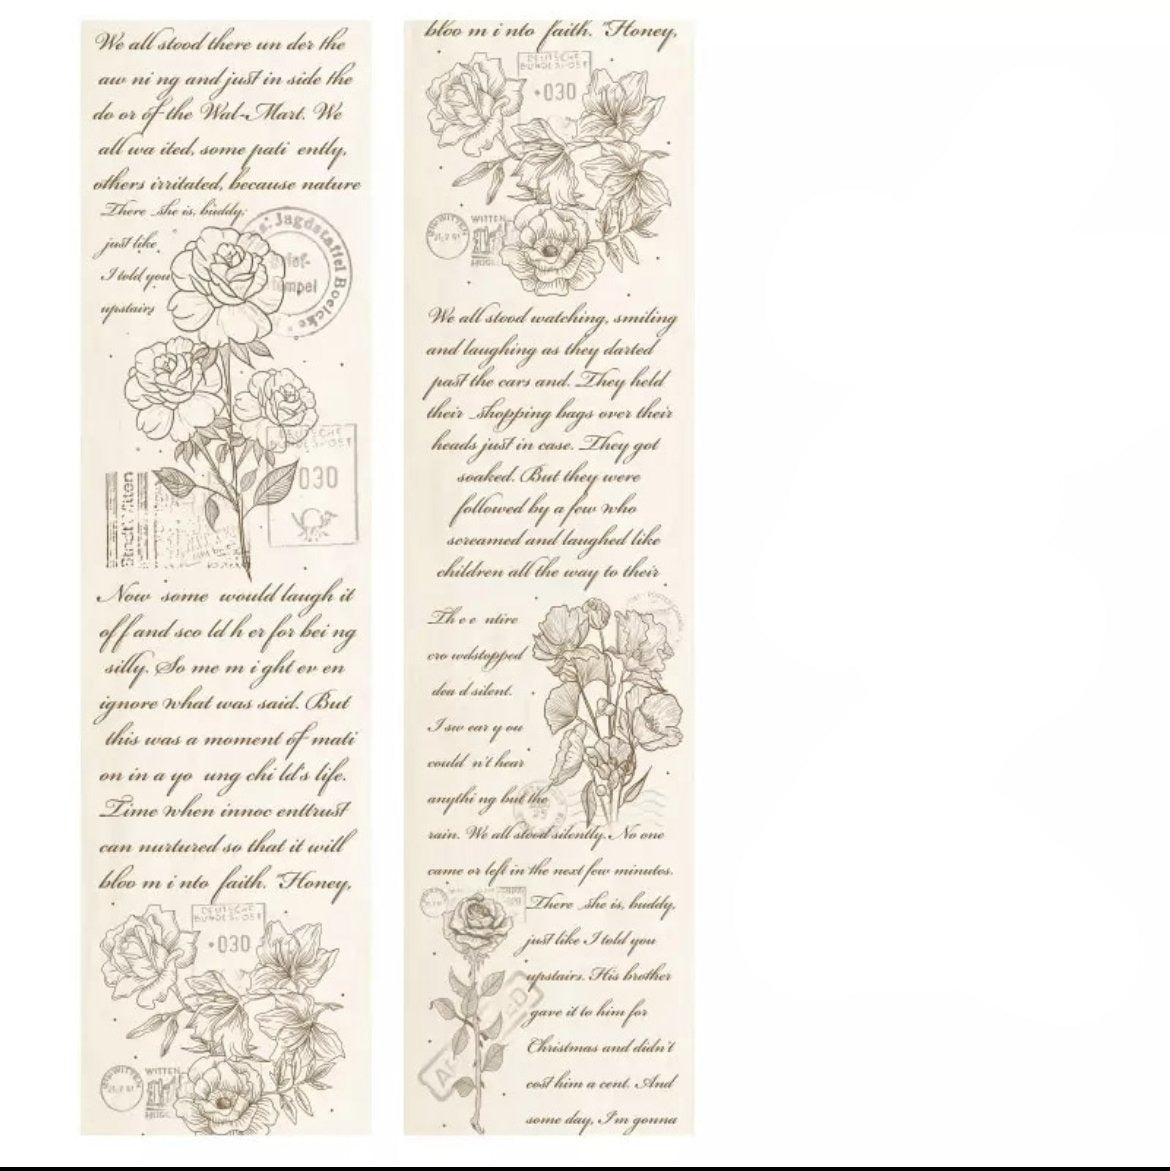 We all stood there un der the
aw ni ng and just in side the
do or of the Wal-Mart. We
all wa ited, some pati ently,
others irritated, because nature
There she is, buddy;
just like
I told you
upstairs
Jagdstaffel Boelcke
DEUTSCHE
BUNDESPOST
030
Stadt Witten
Now some would laugh it
off and sco ld h er for bei ng
silly. So me m i ght ev en
ignore what was said. But
this was a moment of mati
on in a yo ung chi ld's life.
Time when innoc enttrust
can nurtured so that it will
bloo m i nto faith. "Honey,
DEUTSCHE
BUNDESPOST
030
WITTEN
WITTEN
bloo m i nto faith. "Honey,
DEUTSCHE
BUNDESPOST
030
WITTEN
WITTEN
We all stood watching, smiling
and laughing as they darted
past the cars and. They held
their shopping bags over their
heads just in case. They got
soaked. But they were
followed by a few who
screamed and laughed like
children all the way to their
Th e e ntire
cro wdstopped
dea d silent.
I sw ear y ou
could n't hear
anythi ng but the
rain. We all stood silently. No one
came or left in the next few minutes.
There she is, buddy,
just like I told you
upstairs. His brother
gave it to him for
Christmas and didn't
cost him a cent. And
some day, I'm gonna